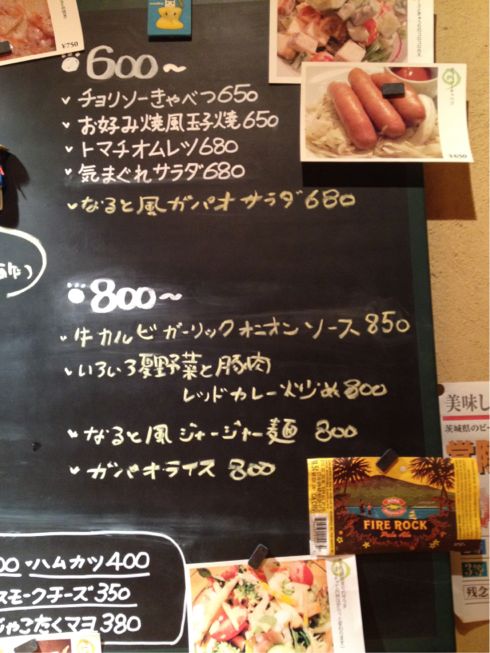 ¥750
600~
チョリソーきゃべつ650
お好み焼風玉子焼650
トマチオムレツ680
気まぐれサラダ680
なると風ガパオサラダ680
¥650
800~
牛カルビガーリックオニオンソース850
いろいろ夏野菜と豚肉
レッドカレー炒め800
なると風ジャージャー麺 800
ガパオライス 800
美味し
茨城県のビー
FIRE ROCK
Pale Ale
残念
00・ハムカツ400
スモークチーズ350
じゃこたくマヨ380